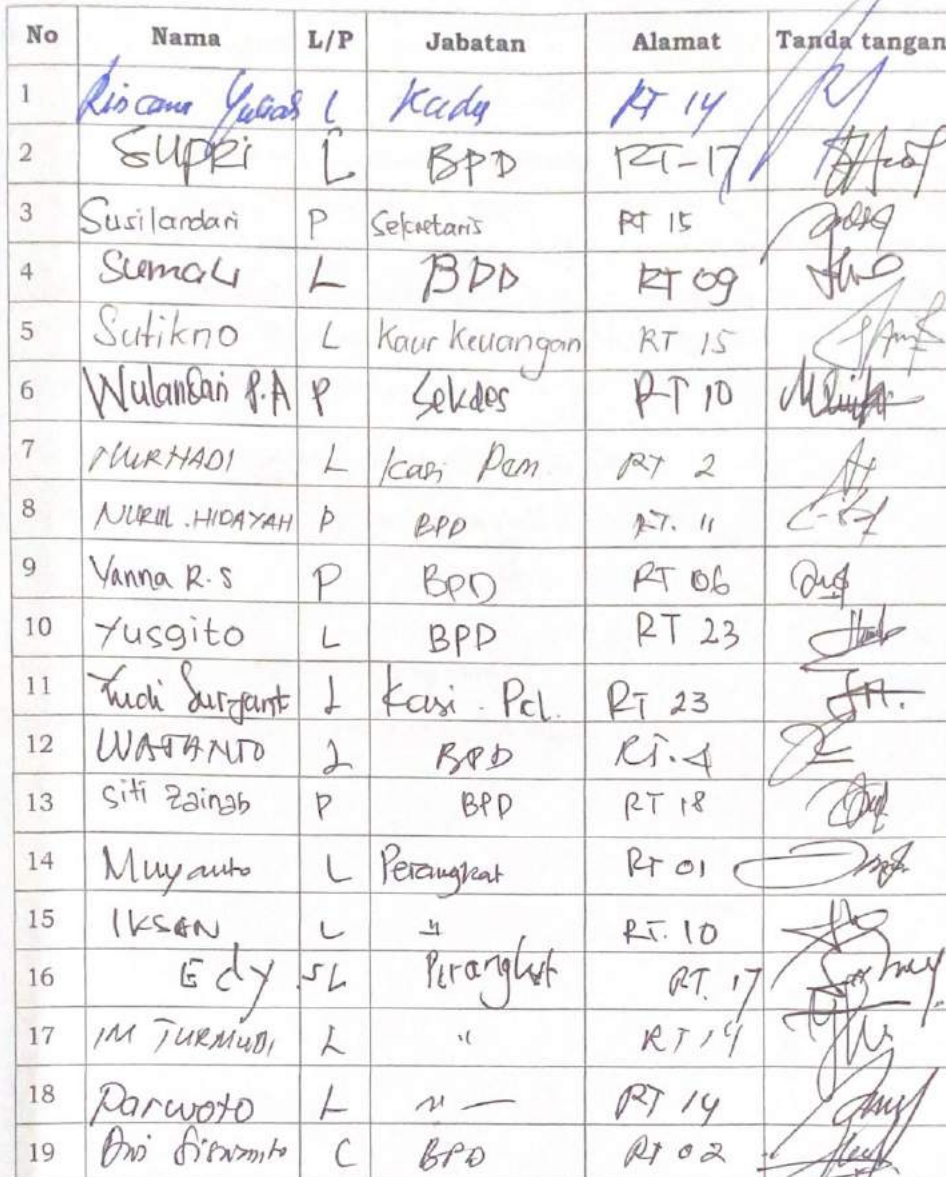 No Nama L/P Jabatan Alamat Tanda tangan
1 L Kadus RT 14
2 SUPRI L BPD RT-17
3 Susilandari P Sekretaris RT 15
4 Sumali L BPD RT 09
5 Sutikno L Kaur Keuangan RT 15
6 Wulandari P.A P Sekdes RT 10
7 NURHADI L Kasi Pem RT 2
8 NURUL HIDAYAH P BPD RT. 11
9 Yanna R.S P BPD RT 06
10 Yusgito L BPD RT 23
11 Yudi L Kasi . Pel. RT 23
12 L BPD RT. 4
13 Siti Zainab P BPD RT 18
14 Muyanto L Perangkat RT 01
15 IKSAN L " RT. 10
16 Edy .S L Perangkat RT. 17
17 IM TURMUDI L " RT 14
18 Parwoto L " — RT 14
19 BPD RT 02